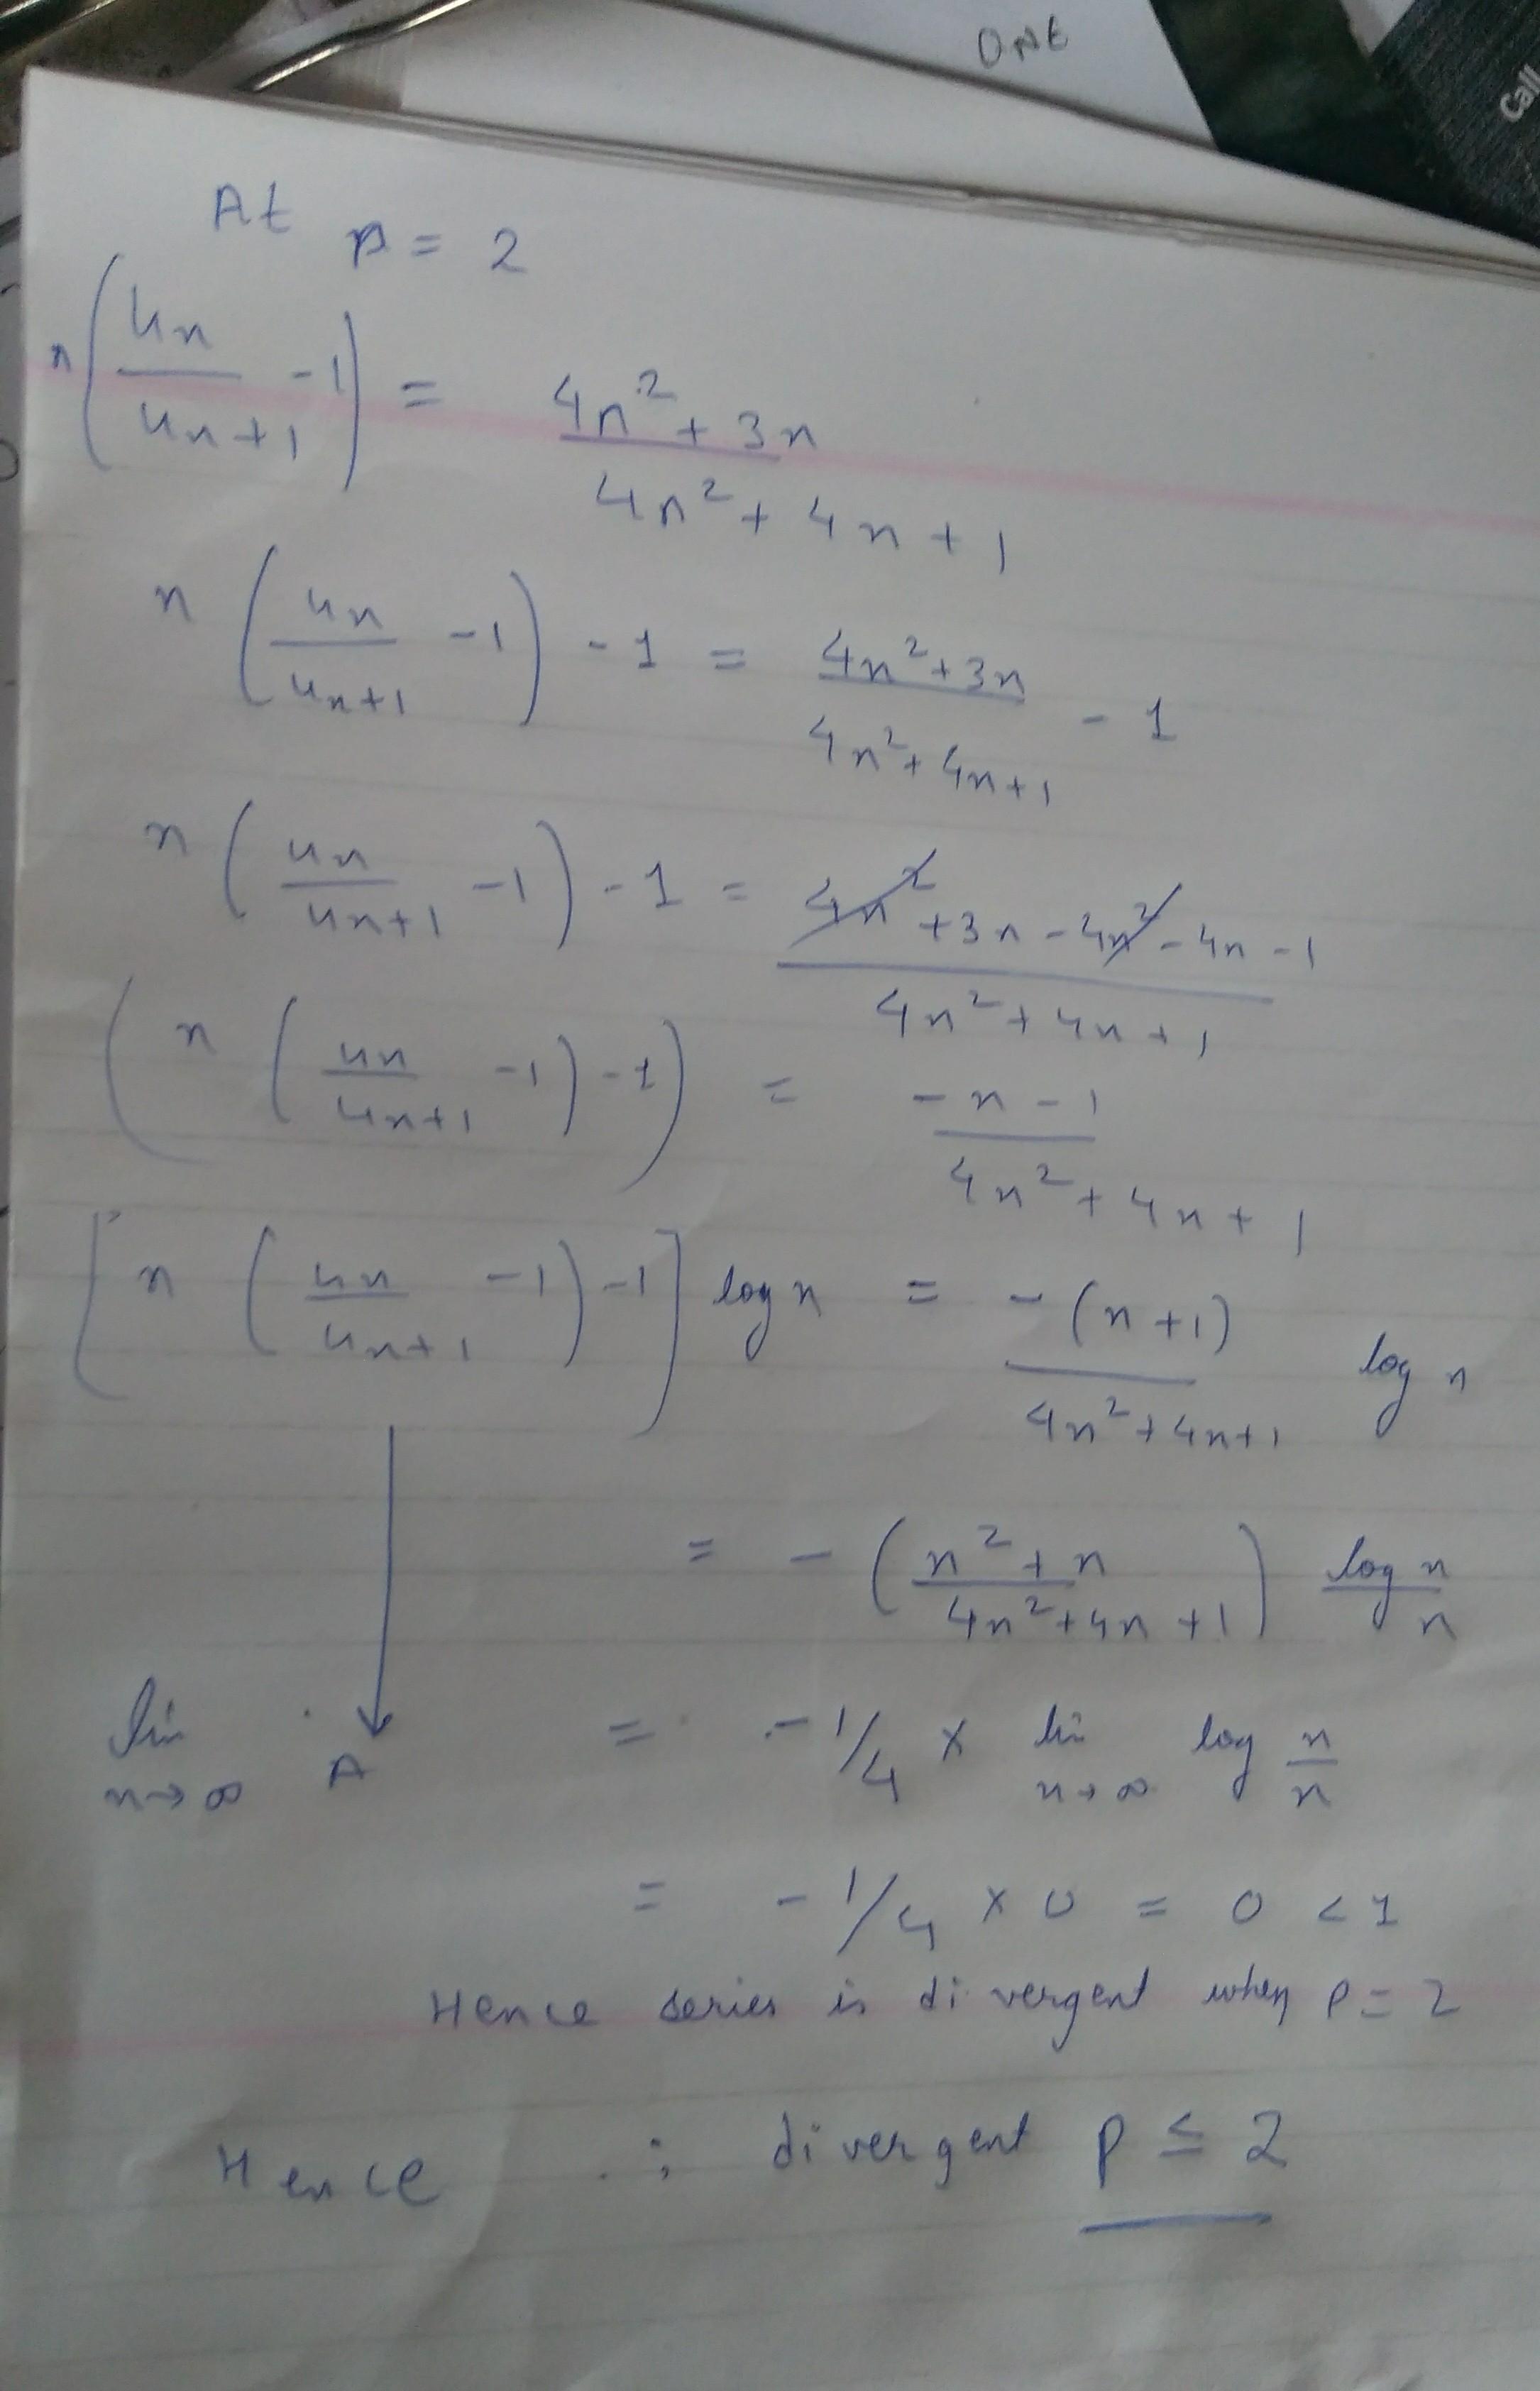 ONE
Call
At p = 2
n(un/un+1 - 1) = 4n² + 3n / 4n² + 4n + 1
n(un/un+1 - 1) - 1 = 4n² + 3n / 4n² + 4n + 1 - 1
n(un/un+1 - 1) - 1 = 4n² + 3n - 4n² - 4n - 1 / 4n² + 4n + 1
(n(un/un+1 - 1) - 1) = -n - 1 / 4n² + 4n + 1
[n(un/un+1 - 1) - 1] log n = -(n + 1) / 4n² + 4n + 1 log n
= -(n² + n / 4n² + 4n + 1) log n / n
lim n→∞ A = -1/4 × lim n→∞ log n/n
= -1/4 × 0 = 0 < 1
Hence series is divergent when P = 2
Hence : divergent P ≤ 2